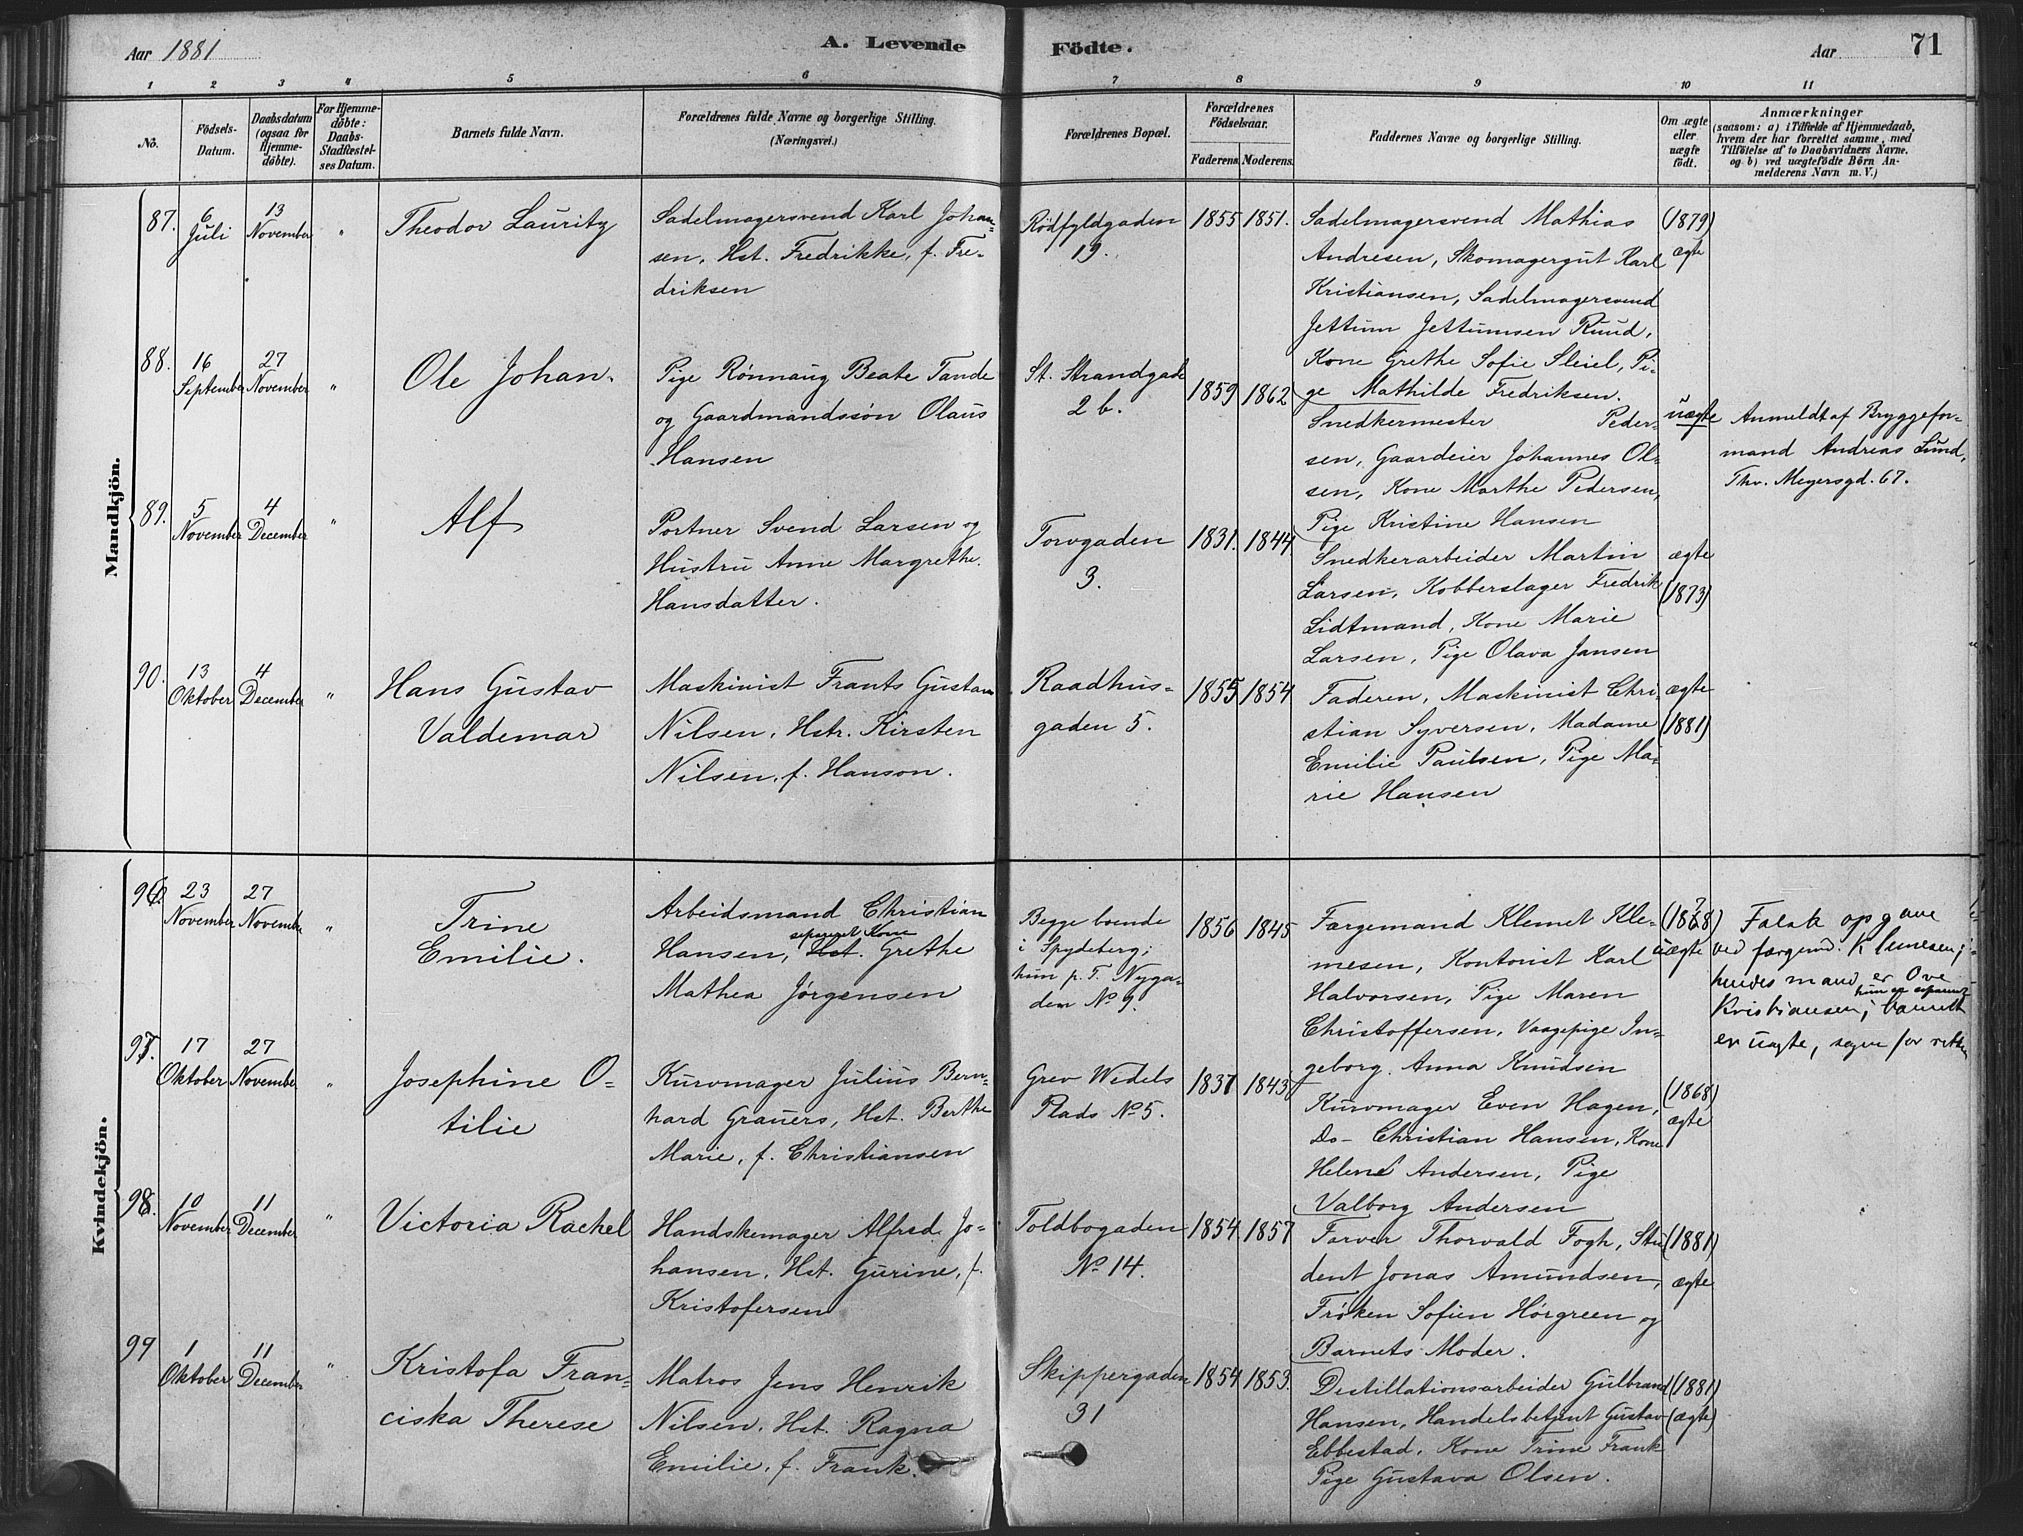 Aar 1881
A. Levende Födte.
Aar
71
1 2 3 4 5 6 7 8 9 10 11
No.
Födsels-
Datum.
Daabsdatum
(ogsaa for
Hjemme-
döbte).
For Hjemme-
döbte:
Daabs-
Stadfæstel-
ses Datum.
Barnets fulde Navn.
Forældrenes fulde Navne og borgerlige Stilling.
(Næringsvei.)
Forældrenes Bopæl.
Forældrenes
Födselsaar.
Faderens. Moderens.
Faddernes Navne og borgerlige Stilling.
Om ægte
eller
uægte
födt.
Anmærkninger
(saasom: a) i Tilfælde af Hjemmedaab,
hvem der har forrettet samme, med
Tilföielse af to Daabsvidners Navne.
og b) ved uægtefödte Börn An-
melderens Navn m. V.)
Mandkjön.
87.
6
Juli
13
November
"
Theodor Lauritz
Sadelmagersvend Karl Johan-
sen, Hst. Fredrikke, f. Fre-
driksen
Rödfyldgaden
19.
1855 1851.
Sadelmagersvend Mathias
Andresen, Skomagergut Karl
Kristiansen, Sadelmagersvend
Jettum Jettumsen Ruud,
Kone Grethe Sofie Sleiel, Pi-
ge Mathilde Fredriksen.
(1879)
ægte
88.
16
September
27
November
"
Ole Johan.
Pige Rönnaug Beate Tande
og Gaardmandssön Olaus
Hansen
St. Strandgade
2 b.
1859 1862
Snedkermester Peder-
sen, Gaardeier Johannes Ol-
sen, Kone Marthe Pedersen,
Pige Kristine Hansen
uægte
Anmeldt af Bryggefor-
mand Andreas Lund,
Thv. Meyersgd. 67.
89.
5
November
4
December
"
Alf
Portner Svend Larsen og
Hustru Anne Margrethe
Hansdatter.
Torvgaden
3.
1831. 1844
Snedkerarbeider Martin
Larsen, Kobberslager Fredrik
Lidtmand, Kone Marie
Larsen, Pige Olava Jansen
ægte
(1873)
90.
13
Oktober
4
December
"
Hans Gustav
Valdemar
Maskinist Frants Gustav
Nilsen, Hstr. Kirsten
Nilsen, f. Hanson.
Raadhus-
gaden 5.
1855 1854
Faderen, Maskinist Chri-
stian Syversen, Madame
Emilie Paulsen, Pige Ma-
rie Hansen
ægte
(1881)
Kvindekjön.
96.
23
November
27
November
"
Trine
Emilie.
Arbeidsmand Christian
separeret Kone
Hansen, Hst. Grethe
Mathea Jörgensen
Begge boende
i Spydeberg;
hun p. T. Nyga-
den No 9.
1856 1845
Færgemand Klemet Kle-
mesen, Kontorist Karl
Halvorsen, Pige Maren
Christoffersen, Vaagepige In-
geborg Anna Knudsen
(1878)
uægte
Falsk opgave
ved færgemd. Klemesen;
hendes mand er Ove
hun er separeret
Kristiansen; barnet
er uægte,
97.
17
Oktober
27
November
"
Josephine O-
tilie
Kurvmager Julius Bern-
hard Grauers, Hst. Berthe
Marie, f. Christiansen
Grev Wedels
Plads No 5.
1837 1843
Kurvmager Even Hagen,
Do- Christian Hansen, Kone
Helene Andersen, Pige
Valborg Andersen
(1868)
ægte
98.
10
November
11
December
"
Victoria Rachel
Handskemager Alfred Jo-
hansen, Hst. Gurine, f.
Kristofersen
Toldbogaden
No 14.
1854 1857
Farver Thorvald Fogh, Stu-
dent Jonas Amundsen,
Fröken Sofien Hörgreen og
Barnets Moder.
(1881)
ægte
99
1
Oktober
11
December
"
Kristofa Fran-
ciska Therese
Matros Jens Henrik
Nilsen, Hst. Ragna
Emilie, f. Frank.
Skippergaden
31
1854 1853.
Destillationsarbeider Gulbrand
Hansen, Handelsbetjent Gustav
Ebbestad, Kone Trine Frank
Pige Gustava Olsen.
(1881)
(ægte)